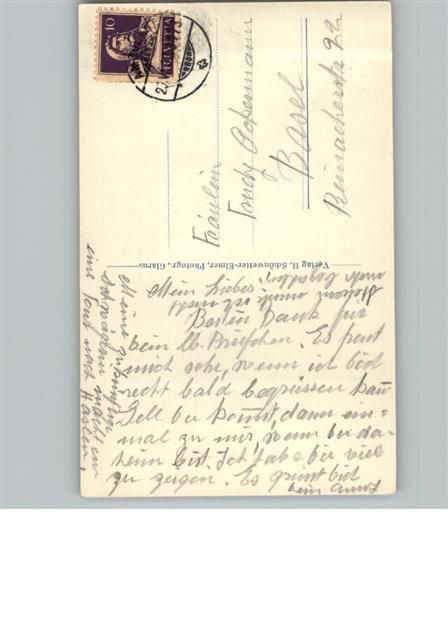 10
HELVETIA
Fräulein
Trudy Ackermann
Basel
Reinacherstr 22
Verlag H. Schönwetter-Elmer, Photogr., Glarus
Mein Liebes
Besten Dank für
dein lb. Brieflein. Es freut
mich sehr, wenn ich dich
recht bald begrüssen kann
Gell du kommst, dann ein-
mal zu mir, wenn du da-
heim bist. Ich habe dir viel
zu zeigen. Es grüsst dich
dein
Meine
machten
eine Tour nach